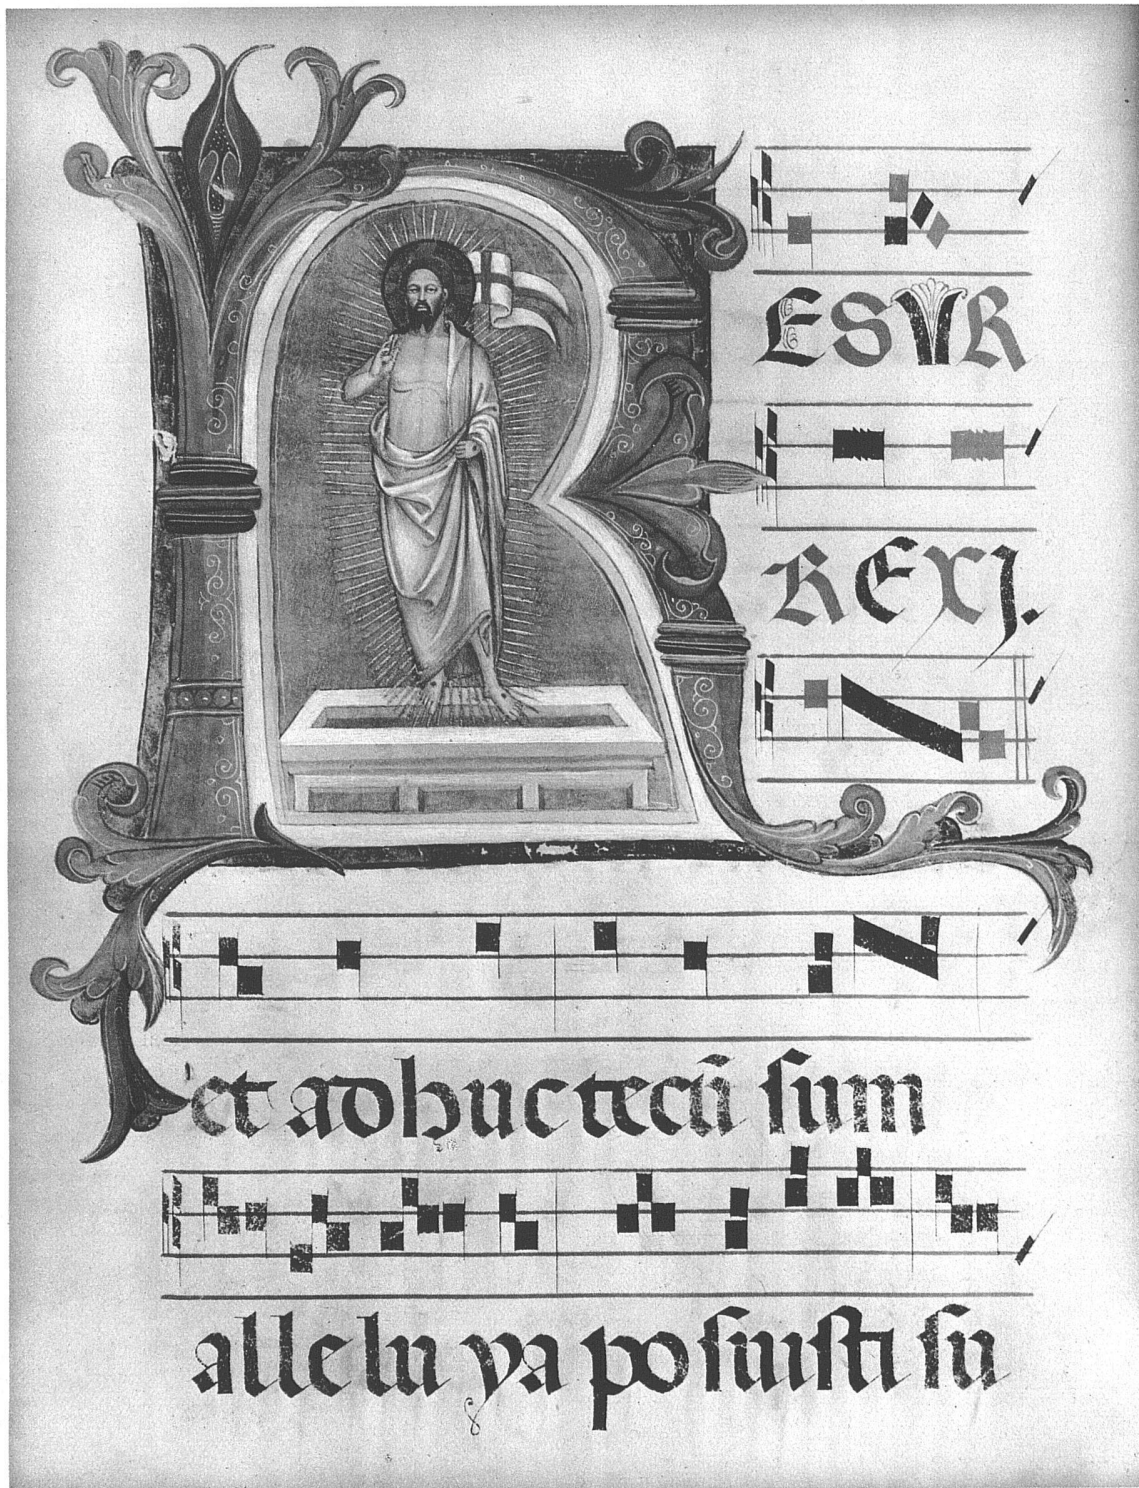 R
ESVR
REXJ.
et adhuc tecū sum
allelu ya posuisti su